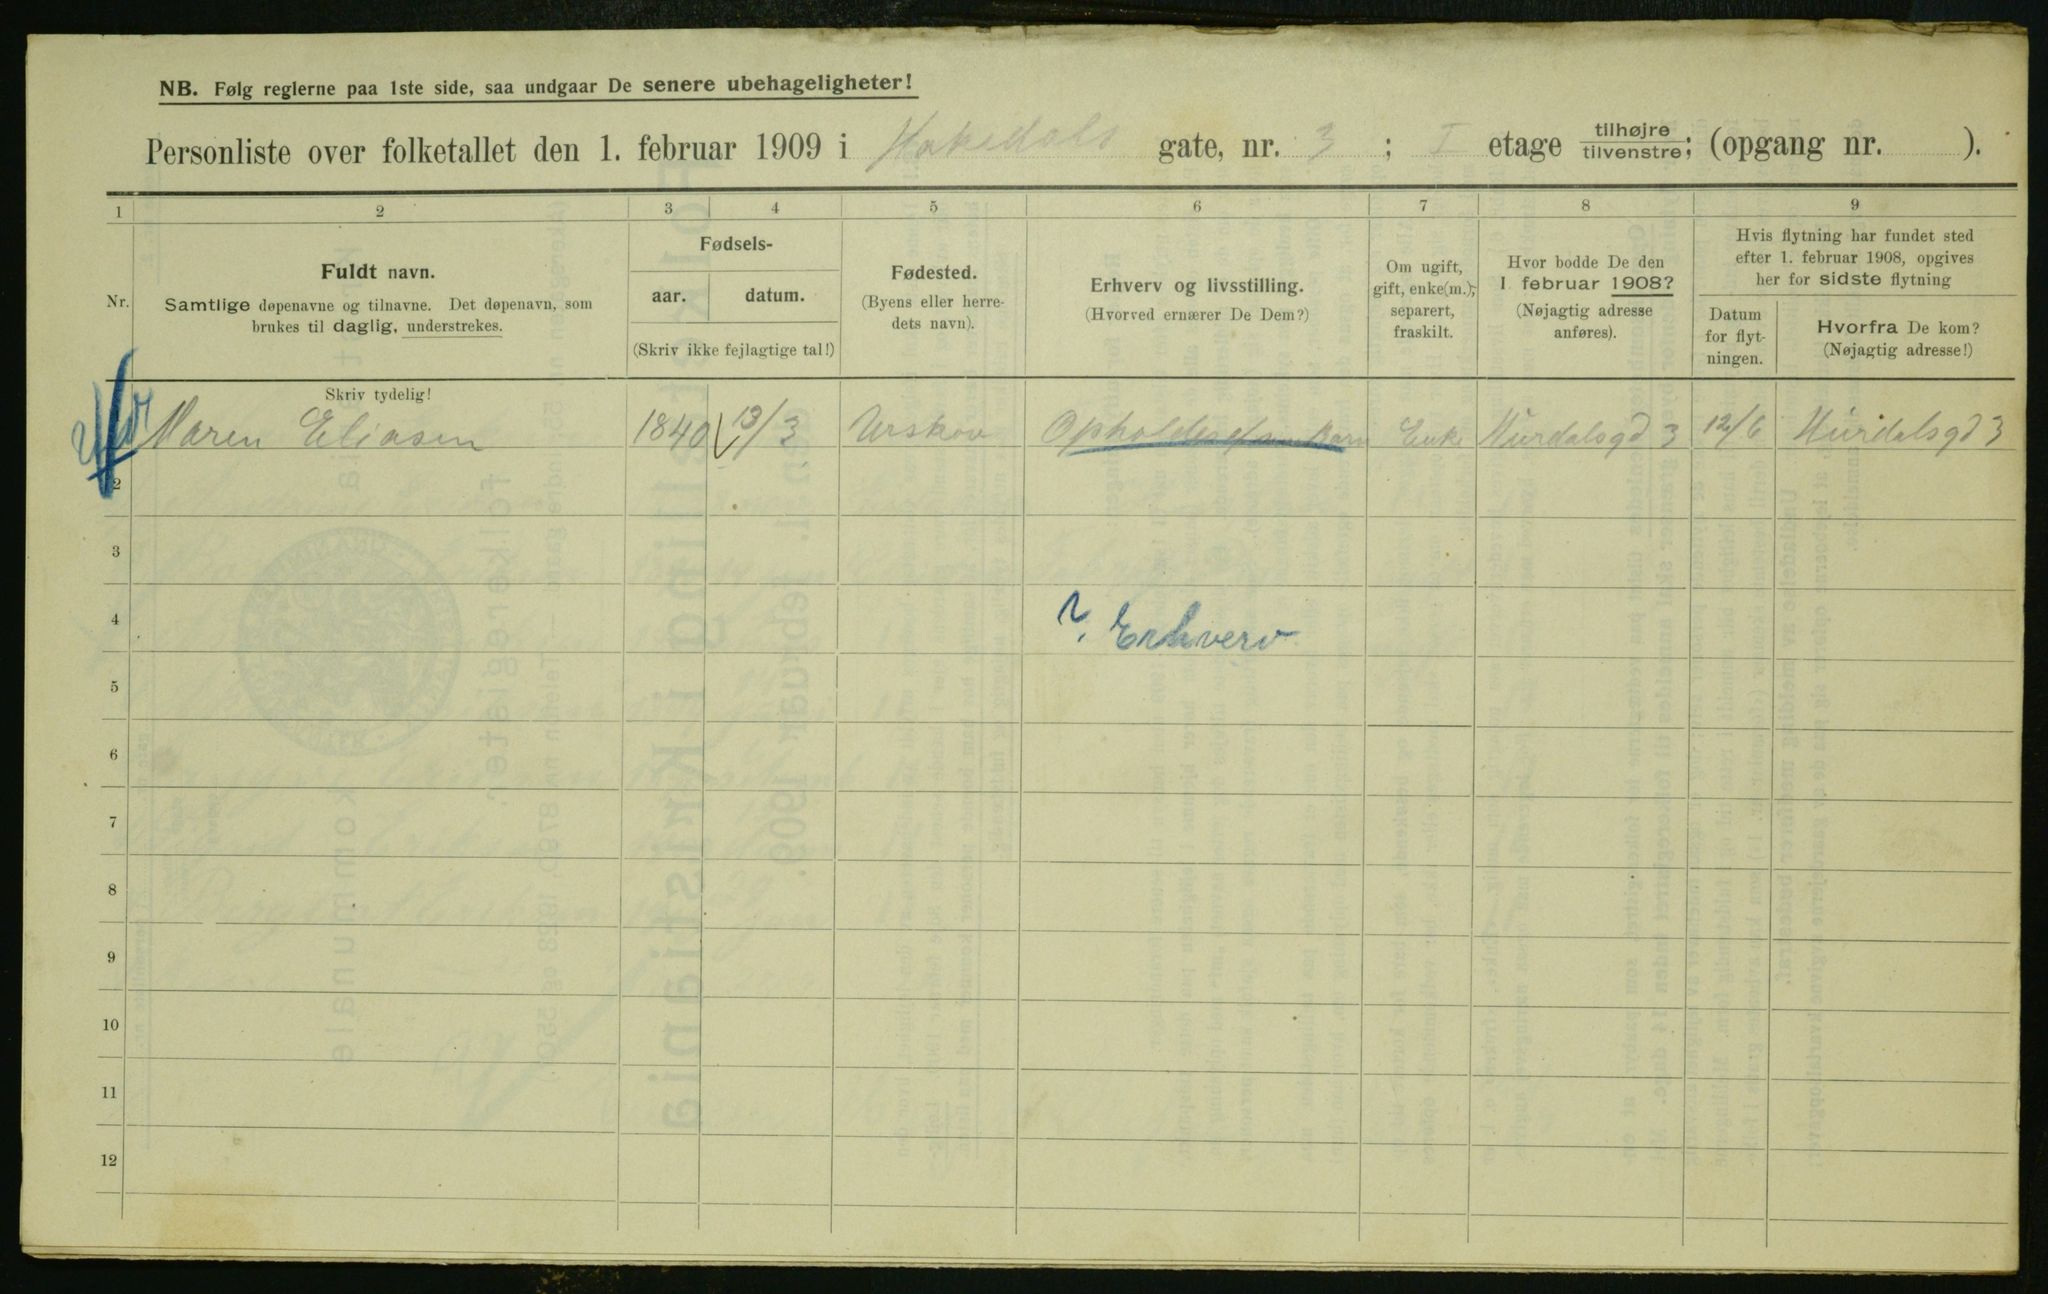 NB. Følg reglerne paa 1ste side, saa undgaar De senere ubehageligheter!
Personliste over folketallet den 1. februar 1909 i Hakedals gate, nr. 3; I etage tilhøjre/tilvenstre; (opgang nr. ).
1 2 3 4 5 6 7 8 9
Nr.
Fuldt navn.
Samtlige døpenavne og tilnavne. Det døpenavn, som
brukes til daglig, understrekes.
Skriv tydelig!
Fødsels-
aar. datum.
(Skriv ikke fejlagtige tal!)
Fødested.
(Byens eller herre-
dets navn).
Erhverv og livsstilling.
(Hvorved ernærer De Dem?)
Om ugift,
gift, enke(m.),
separert,
fraskilt.
Hvor bodde De den
1. februar 1908?
(Nøjagtig adresse
anføres).
Hvis flytning har fundet sted
efter 1. februar 1908, opgives
her for sidste flytning
Datum
for flyt-
ningen.
Hvorfra De kom?
(Nøjagtig adresse!)
Maren Eliasen 1840 13/3 Urskov Opholdes af sin Barn Enke Hurdalsgd 3 12/6 Hurdalsgd 3
2
3
4
? Erhverv
5
6
7
8
9
10
11
12